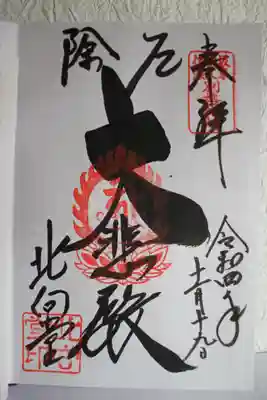 奉拝
令和四年
十一月十九日
厄除
大悲殿
北向堂